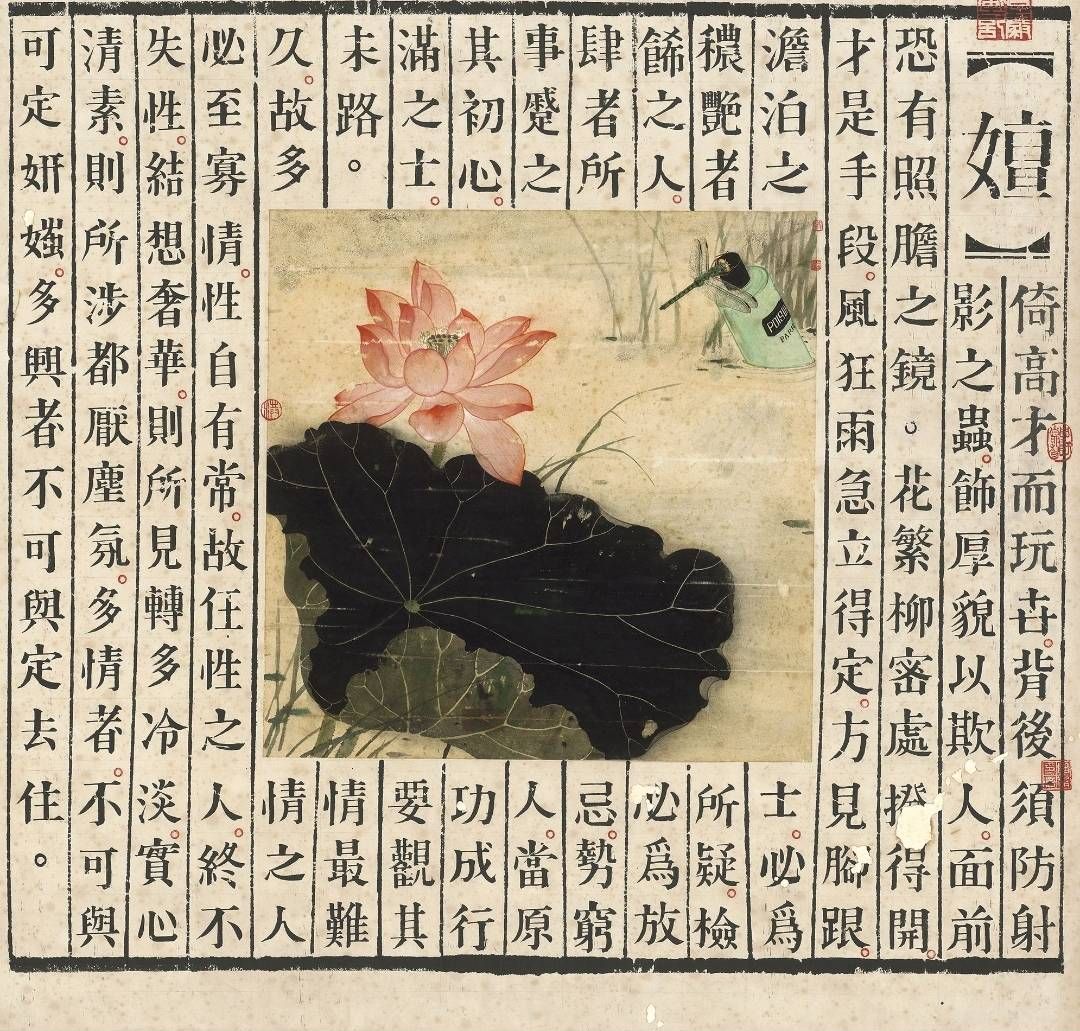 【嬗】
倚高才而玩卋。背後須防射
影之蟲。飾厚貌以欺人。面前
恐有照膽之鏡。花繁柳密處撥得開。
才是手段。風狂雨急立得定。方見腳跟。
澹泊之士。必爲
穠艷者所疑。檢
餙之人。必爲放
肆者所忌。勢窮
事蹙之人。當原
其初心。功成行
滿之士。要觀其
未路。情最難
久。故多情之人
必至寡情。性自有常。故任性之人。終不
失性。結想奢華。則所見轉多冷淡。實心
清素。則所涉都厭塵氛。多情者。不可與
可定妍媸。多興者不可與定去住。